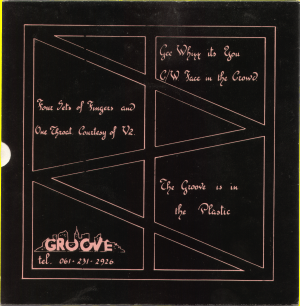 Gee Whizz its You
C/W Face in the Crowd
Four Sets of Fingers and
One Throat Courtesy of V2.
The Groove is in
the Plastic
GROOVE
tel. 061-231-2926